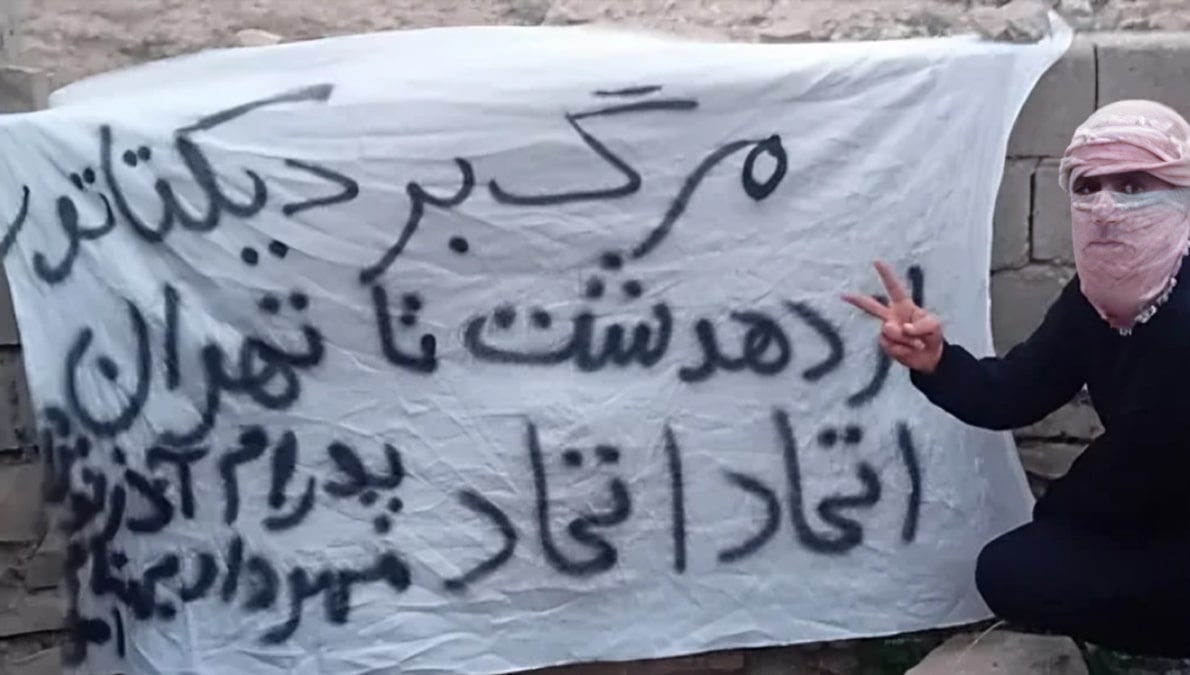 مرگ بر دیکتاتور
از دهدشت تا تهران
اتحاد اتحاد
پدرام آذرنوش
مهرداد بهنام